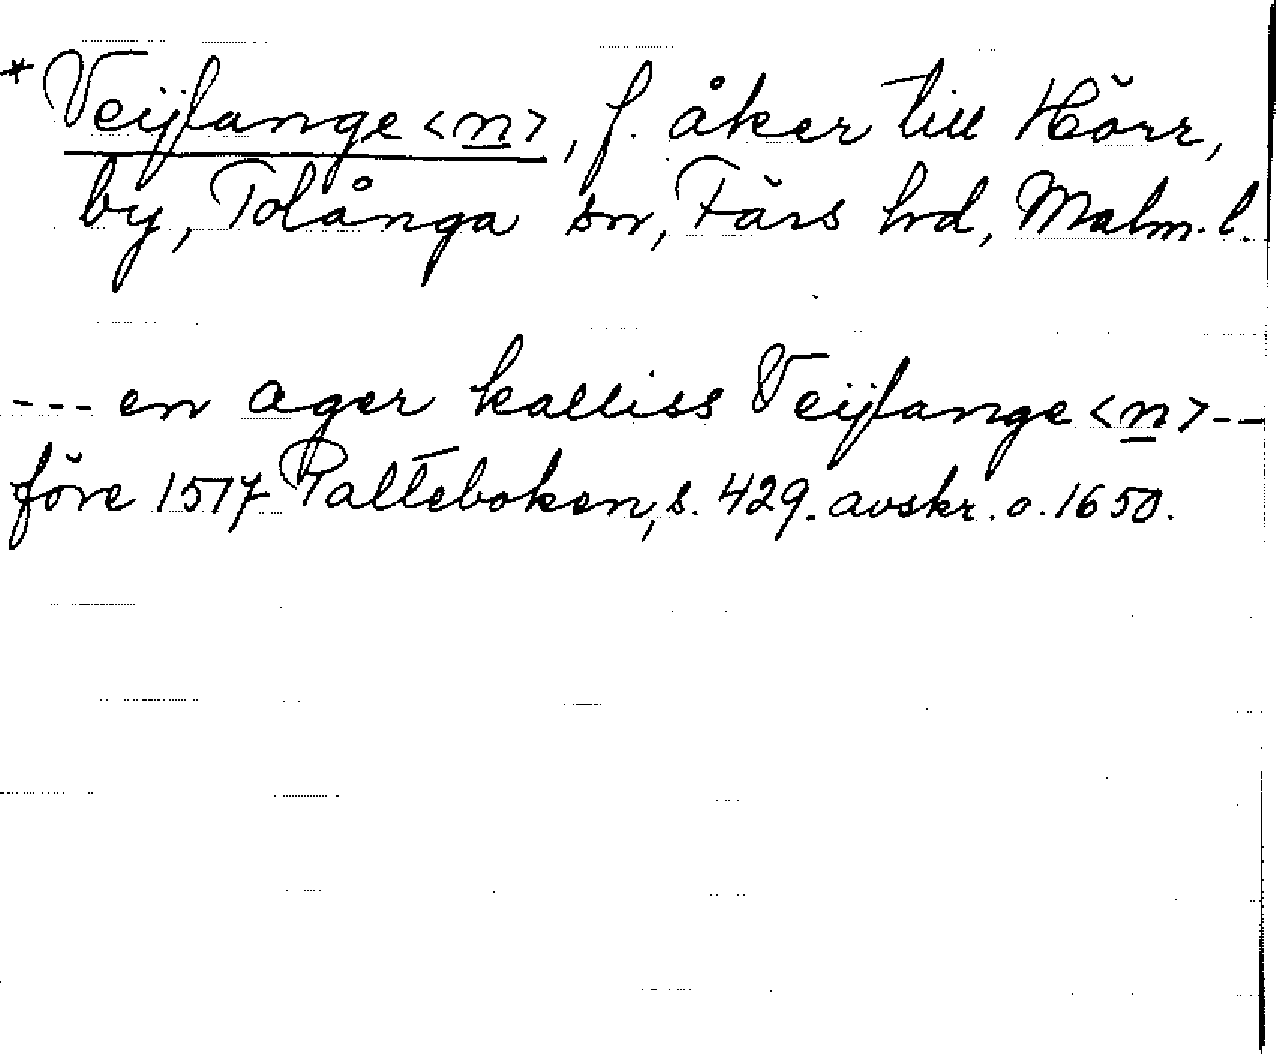 *Veijfange <n>, f. åker till Hörr,
by, Tolånga sn, Färs hd, Malm. l.
--- en ager kalliss Veijfange <n> --
före 1517 Palteboken, s. 429. avskr. o. 1650.